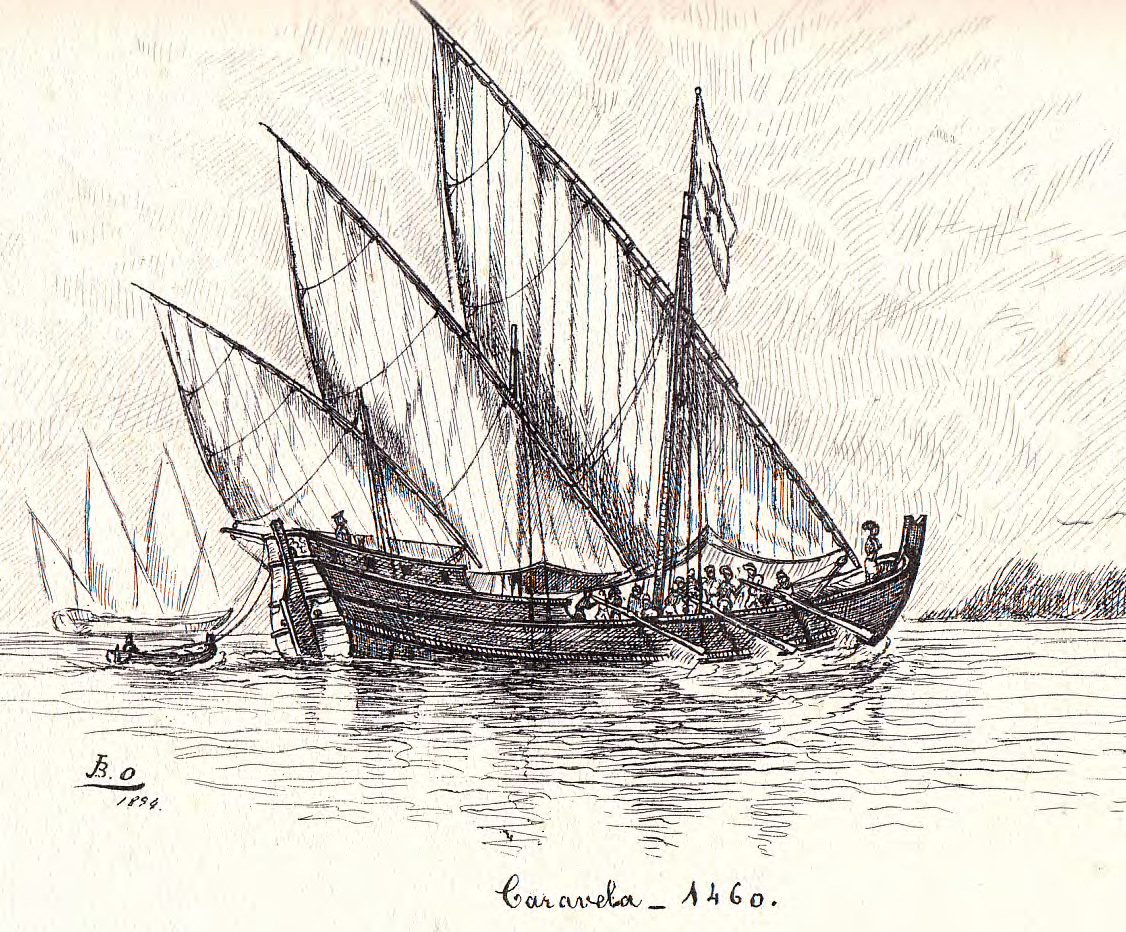 B. O
1894.
Caravela – 1460.